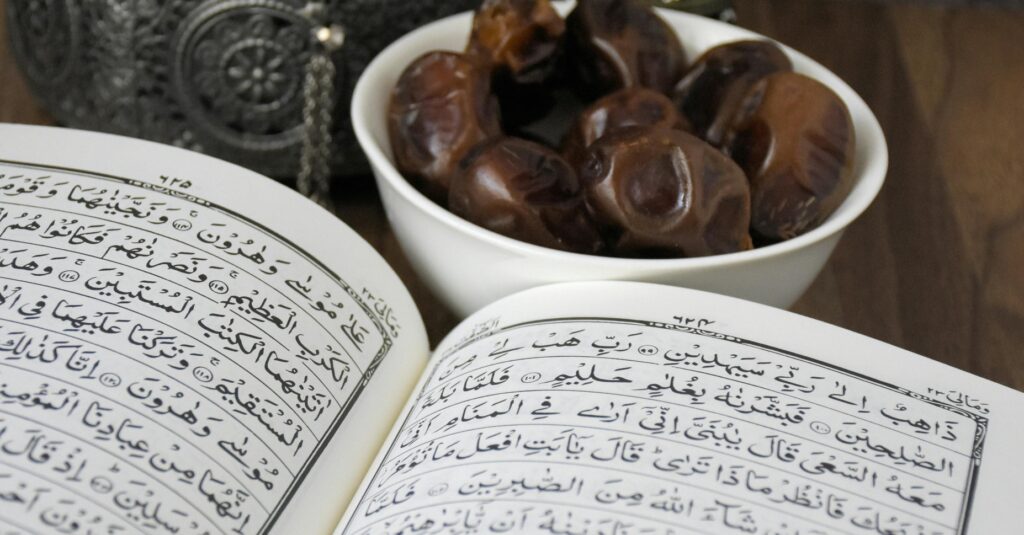 ومالي ٢٣
٦٢٤
ذَاهِبٌ اِلٰى رَبِّيْ سَيَهْدِيْنِ ۝٩٩ رَبِّ هَبْ لِيْ مِنَ
الصّٰلِحِيْنَ ۝١٠٠ فَبَشَّرْنٰهُ بِغُلٰمٍ حَلِيْمٍ ۝١٠١ فَلَمَّا بَلَغَ
مَعَهُ السَّعْيَ قَالَ يٰبُنَيَّ اِنِّيْٓ اَرٰى فِي الْمَنَامِ اَنِّيْٓ
اَذْبَحُكَ فَانْظُرْ مَاذَا تَرٰى قَالَ يٰٓاَبَتِ افْعَلْ مَا تُؤْمَرُ
شَآءَ اللّٰهُ مِنَ الصّٰبِرِيْنَ ۝١٠٢ فَلَمَّآ
اَنْ يّٰٓاِبْرٰهِيْمُ
ومالي ٢٣
٦٢٥
عَلٰى مُوْسٰى وَهٰرُوْنَ ۝١١٤ وَنَجَّيْنٰهُمَا وَقَوْمَ
الْكَرْبِ الْعَظِيْمِ ۝١١٥ وَنَصَرْنٰهُمْ فَكَانُوْا هُمُ
اٰتَيْنٰهُمَا الْكِتٰبَ الْمُسْتَبِيْنَ ۝١١٧ وَهَدَ
الْمُسْتَقِيْمَ ۝١١٨ وَتَرَكْنَا عَلَيْهِمَا فِي الْاٰ
مُوْسٰى وَهٰرُوْنَ ۝١٢٠ اِنَّا كَذٰلِكَ
اِنَّهُمَا مِنْ عِبَادِنَا الْمُؤْمِنِ
سَلِيْنَ ۝١٢٣ اِذْ قَالَ